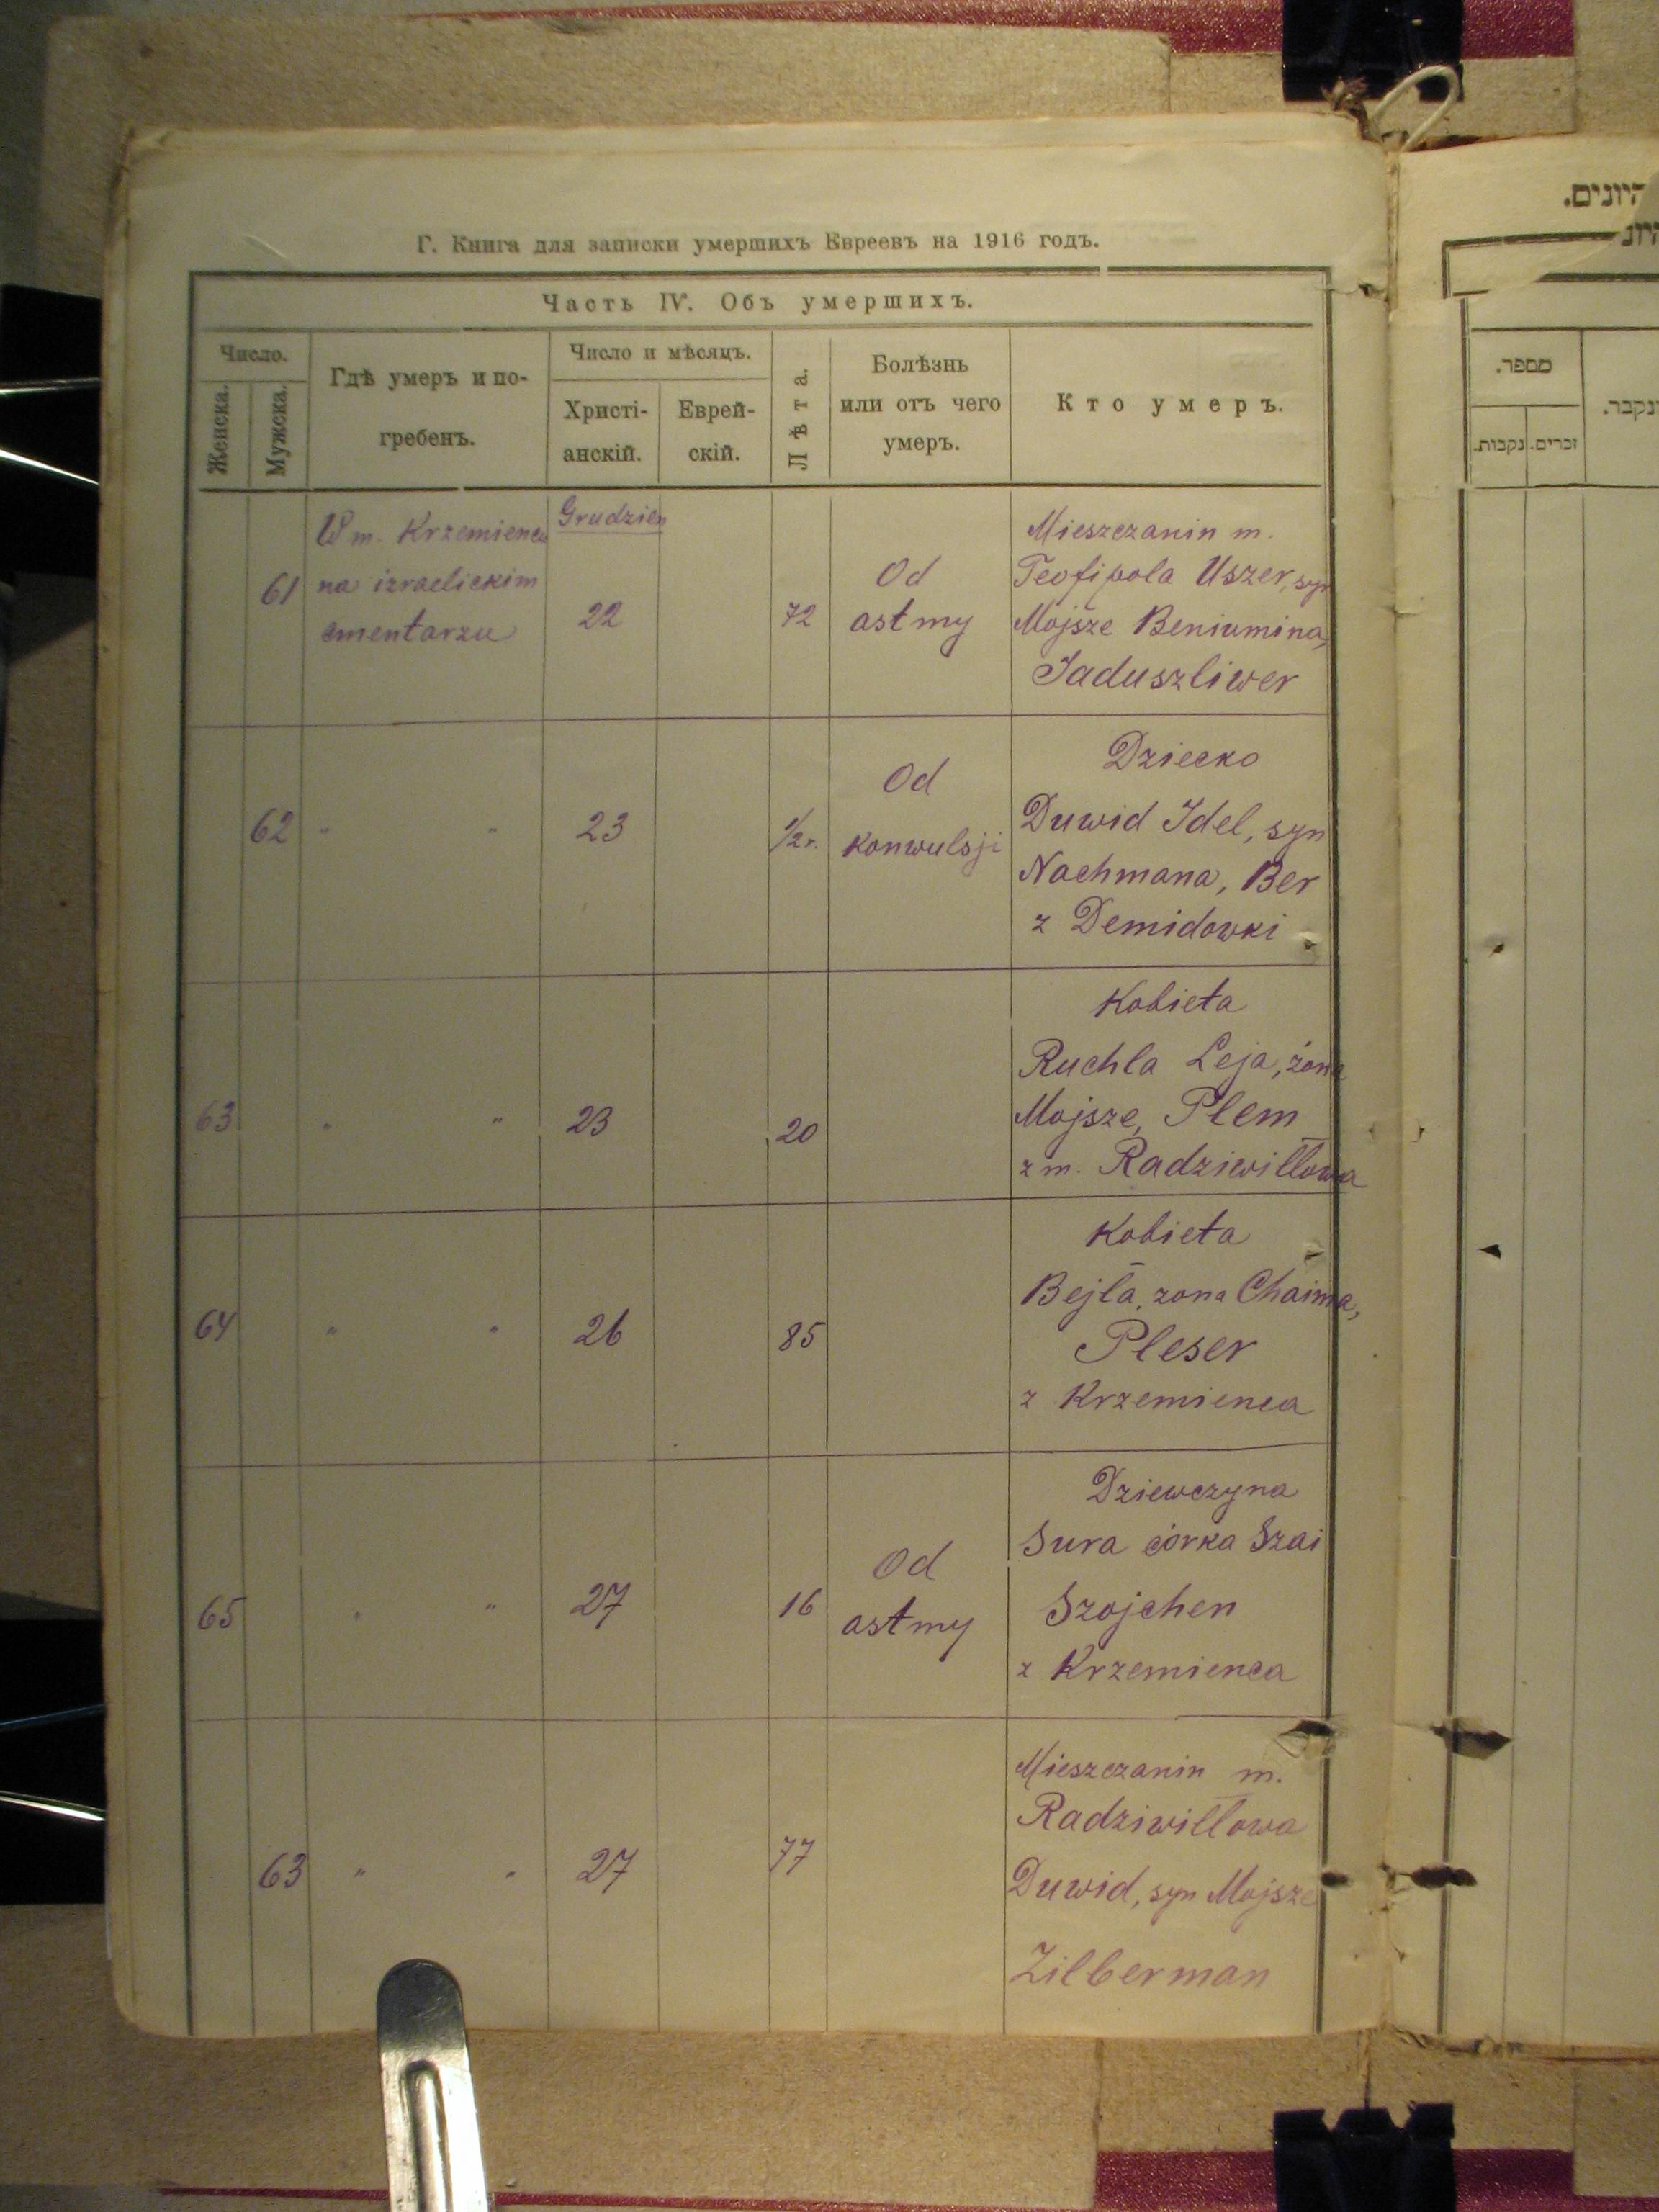 Г. Книга для записки умершихъ Евреевъ на 1916 годъ.
Часть IV. Объ умершихъ.
Число.
Женска.
Мужска.
Гдѣ умеръ и по-
гребенъ.
Число и мѣсяцъ.
Христі-
анскій.
Еврей-
скій.
Лѣта.
Болѣзнь
или отъ чего
умеръ.
Кто умеръ.
61
W m. Krzemieńcu
na izraelickim
cmentarzu
Grudzień
22
72
Od
astmy
Mieszczanin m.
Teofipola Uszer, syn
Mojsze Beniumina,
Jaduszliwer
62
" "
23
1/2 r.
Od
konwulsji
Dziecko
Duwid Idel, syn
Nachmana, Ber
z Demidowki
63
" "
23
20
Kobieta
Ruchla Leja, żona
Mojsze, Plem
z m. Radziwiłłowa
64
" "
26
85
Kobieta
Bejla, zona Chaima,
Pleser
z Krzemienca
65
" "
27
16
Od
astmy
Dziewczyna
Sura córka Szai
Szojchen
z Krzemienca
63
" "
27
77
Mieszczanin m.
Radziwiłłowa
Duwid, syn Mojsze
Zilberman
מספר.
נקבות.
זכרים.